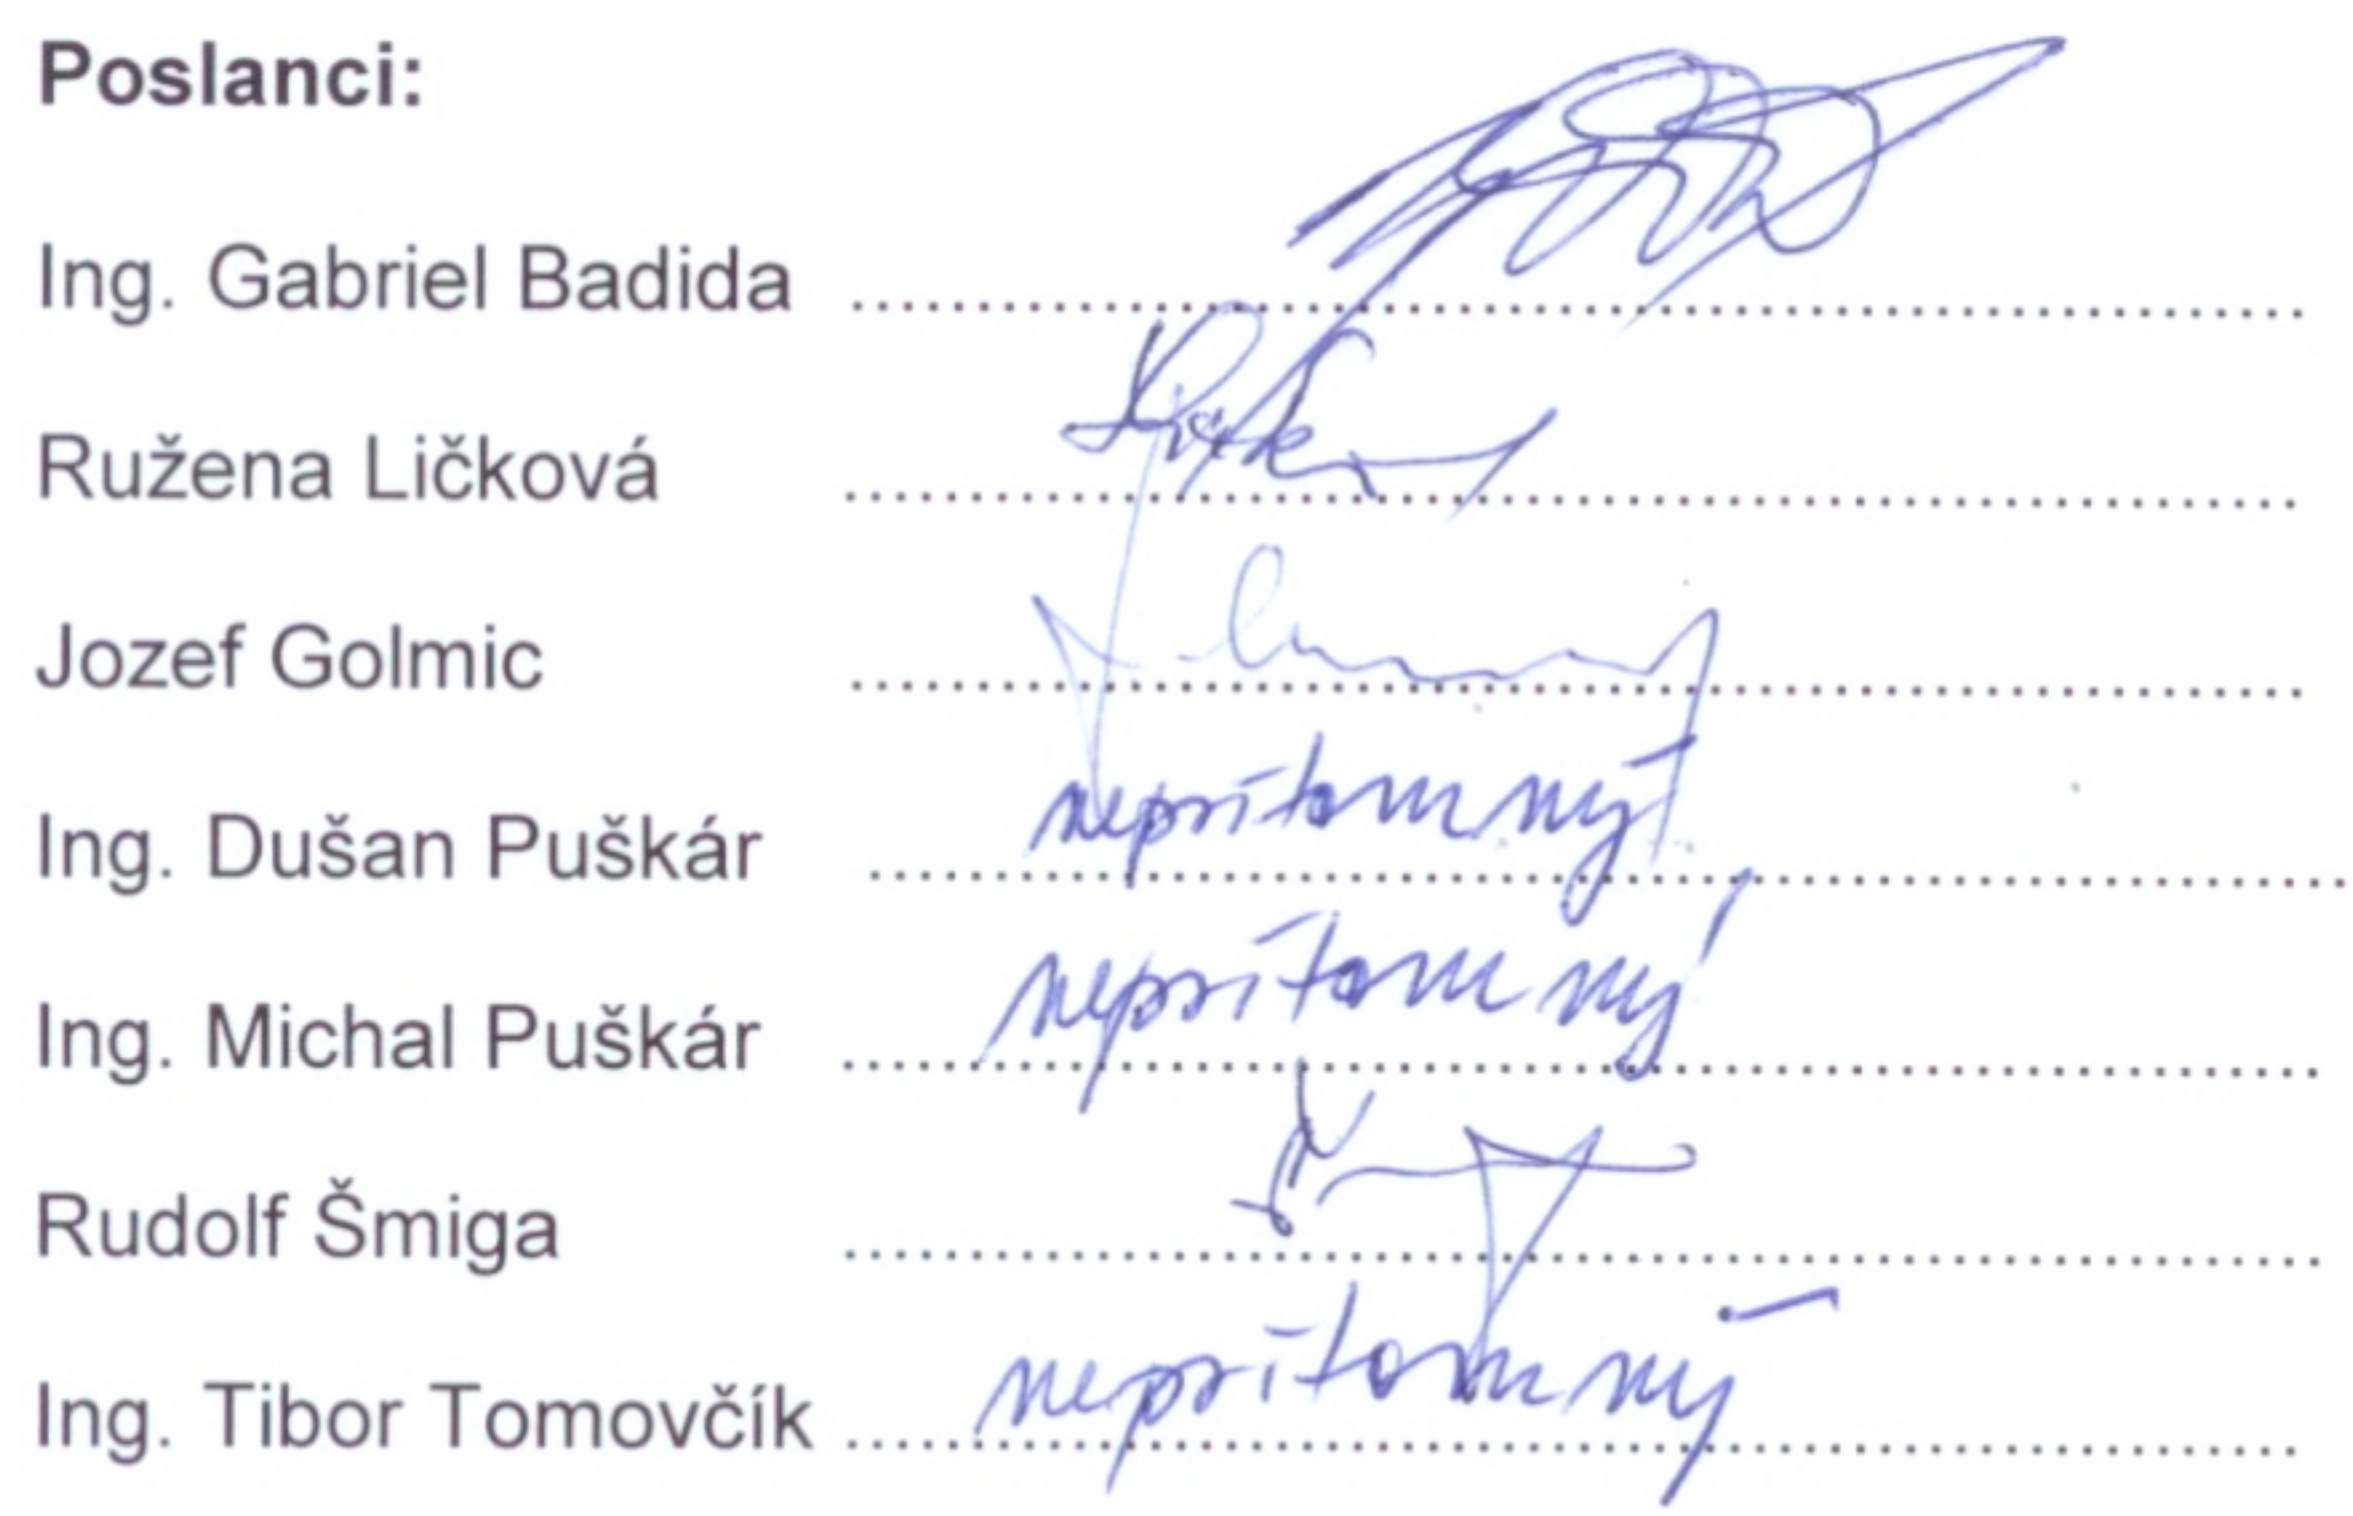 Poslanci:
Ing. Gabriel Badida ........................................................
Ružena Ličková ........................................................
Jozef Golmic ........................................................
Ing. Dušan Puškár neprítomný ........................................................
Ing. Michal Puškár neprítomný ........................................................
Rudolf Šmiga ........................................................
Ing. Tibor Tomovčík neprítomný ........................................................